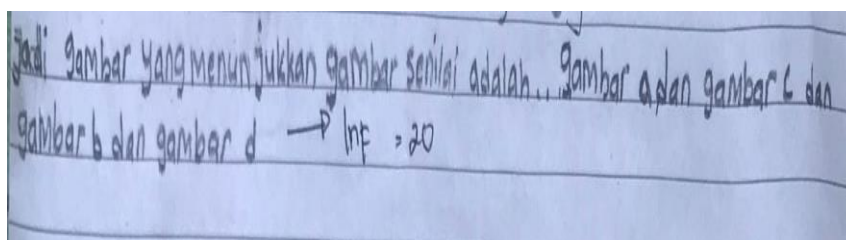 Jadi gambar yang menunjukkan gambar senilai adalah... gambar a dan gambar c dan
gambar b dan gambar d → Inf = 20